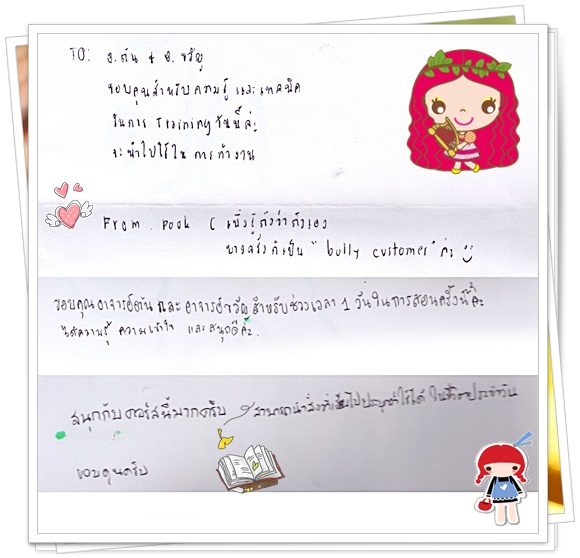 TO: อ.ตัน + อ.ขวัญ
ขอบคุณสำหรับความรู้ และเทคนิค
ในการ Training วันนี้ค่ะ
จะนำไปใช้ในการทำงาน
From. Pook ( เพิ่งรู้ตัวว่าตัวเอง
บางครั้งก็เป็น "bully customer" ค่ะ
ขอบคุณอาจารย์ตัน และ อาจารย์ขวัญ สำหรับช่วงเวลา 1 วันในการสอนครั้งนี้ค่ะ
ได้ความรู้ ความเข้าใจ และสนุกดีค่ะ.
สนุกกับคอร์สนี้มากครับ สามารถนำสิ่งที่เรียนไปประยุกต์ใช้ได้ ในชีวิตประจำวัน
ขอบคุณครับ